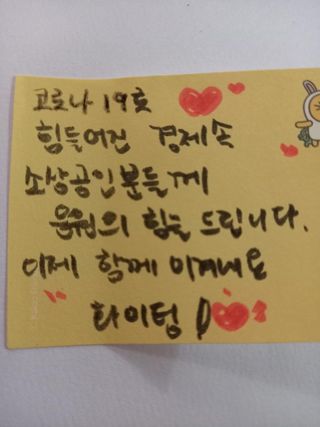 코로나 19로
힘들어진 경제속
소상공인분들께
응원의 힘을 드립니다.
이제 함께 이겨내요
화이팅!